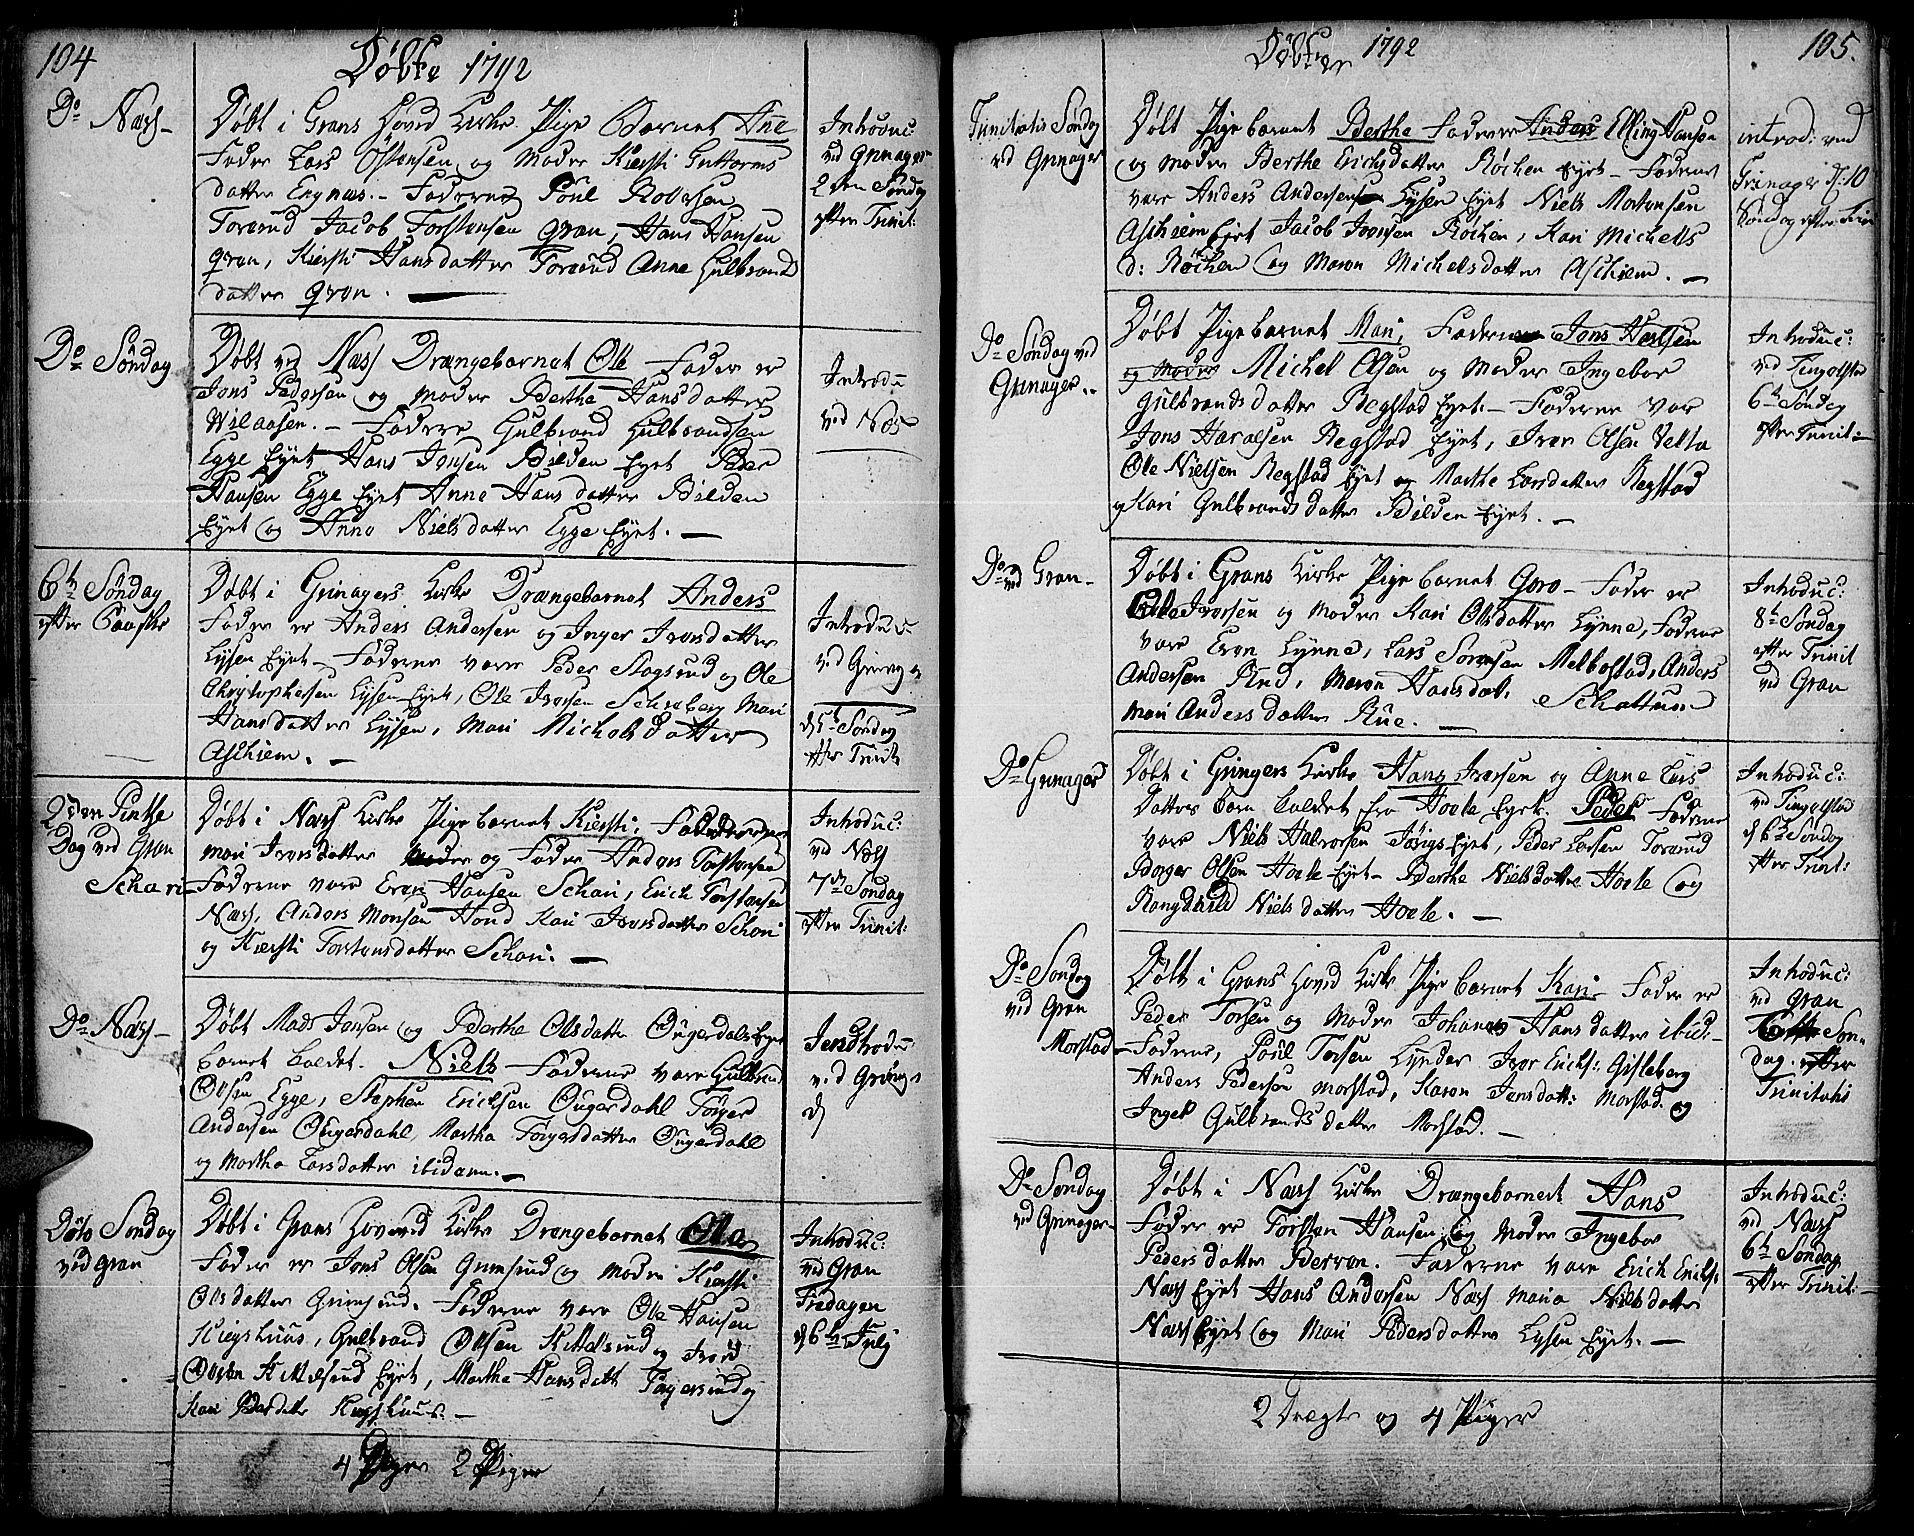 104
Döbte 1792
Do Næss
Döbt i Grans Hoved Kirke Pige Barnet Ane
Fader Lars Östensen og Moder Kiersti Guttorms
datter Engnæs. Fadderne Poul
Jacob Torstensen Gran, Hans Hansen
Gran, Kiersti Hansdatter Anne Gulbrands
datter Gran.
Introduc:
ved Grinager
2den Söndag
efter Trinit:
Do Söndag
Döbt ved Næss Drængebarnet Ole Fader er
Jens Pedersen og Moder Berthe Hansdatter
Fadderne Gulbrand Gulbrandsen
Egge Eyet Hans Jensen Bilden Eyet Peder
Hansen Egge Eyet Anne Hansdatter Bilden
Eyet og Anne Nielsdatter Egge Eyet.
Introdu
ved Næs
6te Söndag
efter Paaske
Döbt i Grinagers Kirke Drængebarnet Anders
Fader er Anders Andersen og Inger Iversdatter
Lysen Eyet Fadderne vare Peder og Ole
Christophersen Lysen Eyet, Ole Iversen Schiaberg Mari
Hansdatter Lysen, Mari Michelsdatter
Aschiem.
Introduc:
ved Grinag
d 5te Söndag
efter Trinit
2den Pintse
Dag ved Gran
Schari
Döbt i Næss Kirke Pige barnet Kiersti,
Mari Iversdatter og Fader Anders Torstensen
Fadderne vare Even Hansen Schari, Erich Torstensen
Næss, Anders Monsen Kari Iversdatter Schari
og Kiersti Torstensdatter Schari.
Introduc:
ved Næss
7de Söndag
efter Trinit:
Do Næss
Döbt Mads Jensen og Berthe Olsdatter Ougerdals Eyet
barnet kaldet Niels Fadderne vare Gulbrand
Olsen Egge, Stephen Ericksen Ougerdahl Torger
Andersen Ougerdahl, Martha Torgersdatter Ougerdahl
og Martha Larsdatter ibidem.
Introdu:
ved Gring
d
Dito Söndag
ved Gran
Döbt i Grans Hoved Kirke Drængebarnet Ole
Fader er Jens Olsen Grimsrud og Moder Kiersti
Olsdatter Grimsrud. Fadderne vare Ole Hansen
Gulbrand Olsen Kittelsrud og
Olsen Kittelsrud Eyet, Marthe Hansdatt
Kari
Introduc:
ved Gran
Fredagen
d 6te July
4 2 Piger
Döbte 1792
105.
Trinitatis Söndag
ved Grinager
Döbt Pige barnet Berthe Fader er Anders Elling Hansen
og Moder Berthe Erichsdatter Röchen Eyet Fadderne
vare Anders Andersen Lysen Eyet Niels Mortensen
Aschiem Eyet Jacob Iversen Röchen, Kari Michels
d: Röchen og Maren Michelsdatter Aschiem.
introd: ved
Grinager d: 10
Söndag efter Trin
Do Söndag ved
Grinager
Döbt Pigebarnet Mari, Fader Jens
og Moder Michel Olsen og Moder Ingebor
Gulbrandsdatter Regstad Eyet. Fadderne var
Jens Haralsen Regstad Eyet, Iver Olsen Velta
Ole Nielsen Regstad Eyet og Marthe Larsdatter Regstad
og Kari Gulbrandsdatter Bilden Eyet.
Introduc:
ved Tingelstad
6te Söndag
efter Trinit:
Do ved Gran
Döbt i Grans Kirke Pige barnet Goro Fader er
Iversen og Moder Kari Olsdatter Lynne, Fadderne
vare Even Lynne, Lars Sörensen Melbostad, Anders
Andersen Rud, Maren Hansdat. Schattum
Mari Andersdatter Rue.
Introduc:
8te Söndag
efter Trinit
ved Gran
Do Grinager
Döbt i Gringers Kirke Hans Iversen og Anne Lars
Datters barn kaldet fra Hoele Eyet Peder Fadderne
vare Niels Halvorsen Eyet, Peder Larsen
Borger Olsen Hoele Eyet Berthe Nielsdatter Hoele og
Rangdhild Nielsdatter Hoele.
Introduc:
ved Tingelstad
d 6te Söndag
efter Trinit:
Do Söndag
ved Gran
Morstad
Döbt i Grans Hoved Kirke Pige barnet Kari Fader er
Peder Torsen og Moder Johanne Hansdatter ibid:
Fadderne, Poul Torsen Lynder Iver Erichs: Gisleberg
Anders Pedersen Morstad, Karen Jensdatt: Morstad og
Ingeb Gulbrandsdatter Morstad.
Introduc:
ved Gran
Sön-
dag efter
Trinitatis
Do Söndag
ved Grinager
Döbt i Næss Kirke Drængebarnet Hans
Fader er Torsten Hansen og Moder Ingebor
Pedersdatter Fadderne vare Erich Erichs:
Næss Eyet Hans Andersen Næss Maria Nielsdatter
Næss Eyet og Mari Pedersdatter Lysen Eyet.
Introduc:
ved Næss
6te Söndag
efter Trinit:
2 og 4 Piger